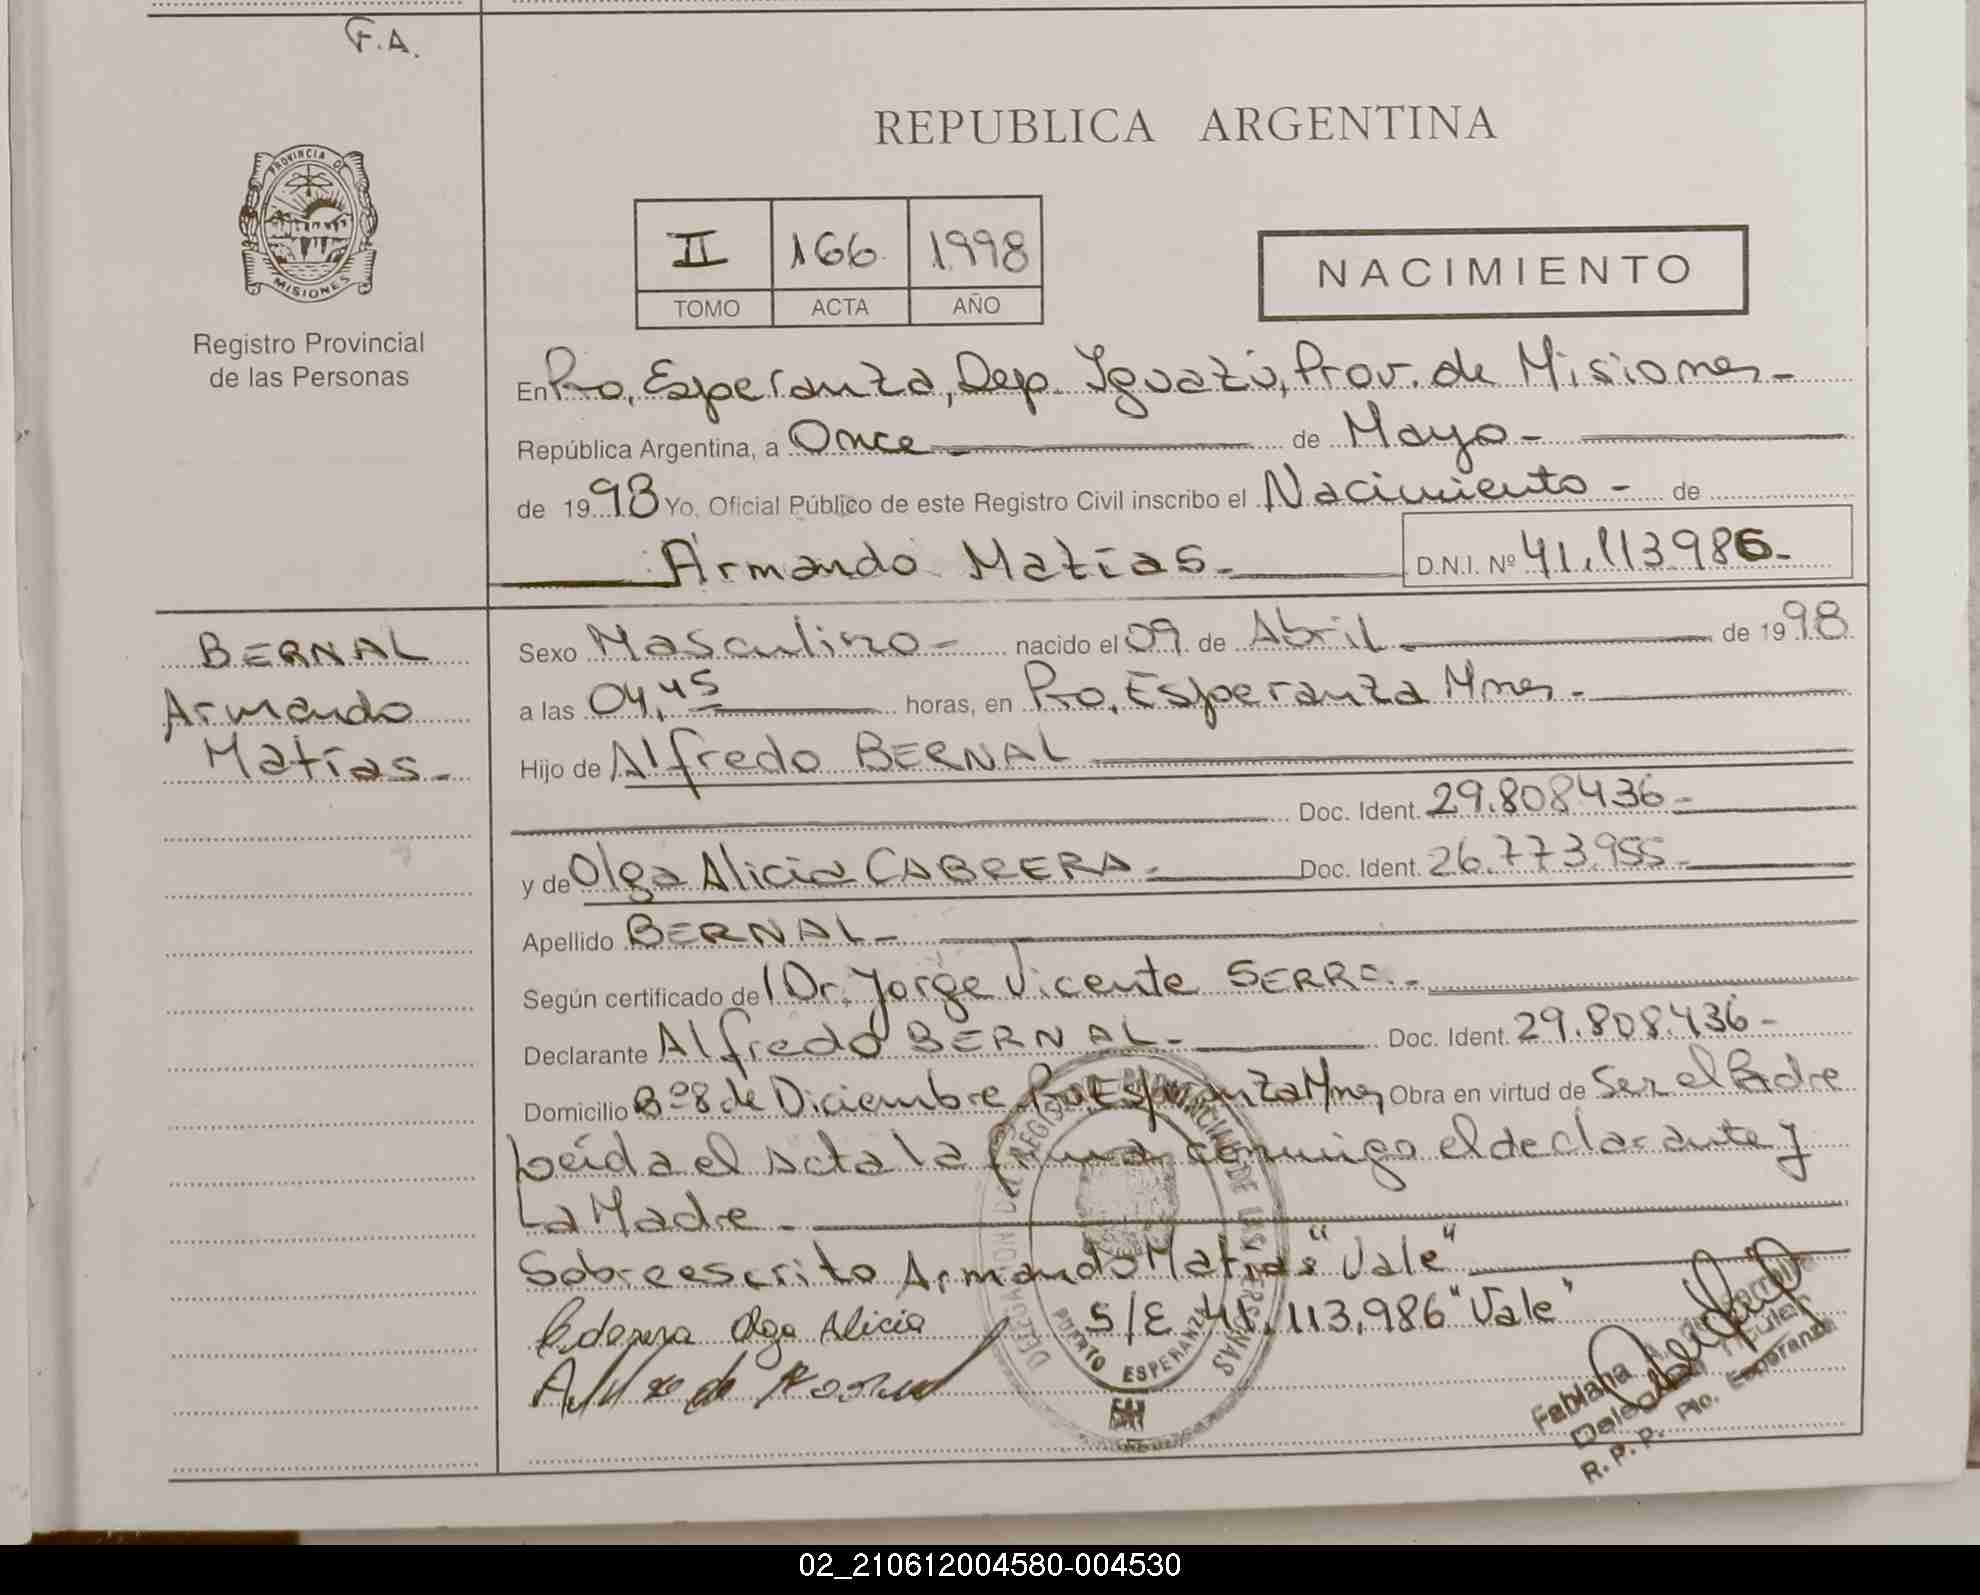 F.A.
REPUBLICA ARGENTINA
PROVINCIA DE
MISIONES
Registro Provincial
de las Personas
II 166 1998
TOMO ACTA AÑO
NACIMIENTO
En Pto. Esperanza, Dep. Iguazú, Prov. de Misiones-
República Argentina, a Once de Mayo-
de 1998 Yo, Oficial Público de este Registro Civil inscribo el Nacimiento - de
Armando Matías-
D.N.I. Nº 41.113.986-
BERNAL
Armando
Matías-
Sexo Masculino- nacido el 09 de Abril de 1998
a las 04,45 horas, en Pto. Esperanza Mnes-
Hijo de Alfredo BERNAL
Doc. Ident. 29.808436-
y de Olga Alicia CABRERA- Doc. Ident. 26.773.955-
Apellido BERNAL-
Según certificado del Dr. Jorge Vicente SERRC.-
Declarante Alfredo BERNAL- Doc. Ident. 29.808.436-
Domicilio Bº 8 de Diciembre Pto Esperanza Mnes Obra en virtud de Ser el Padre
Leída el acta la firma conmigo el declarante y
La Madre-
Sobreescrito Armando Matías "Vale"
S/E 41.113,986 "Vale"
Olga Alicia
DELEGACION DEL REGISTRO PROVINCIAL DE LAS PERSONAS
PUERTO ESPERANZA
Fabiana A.
R. P. P. Pto. Esperanza
02_210612004580-004530